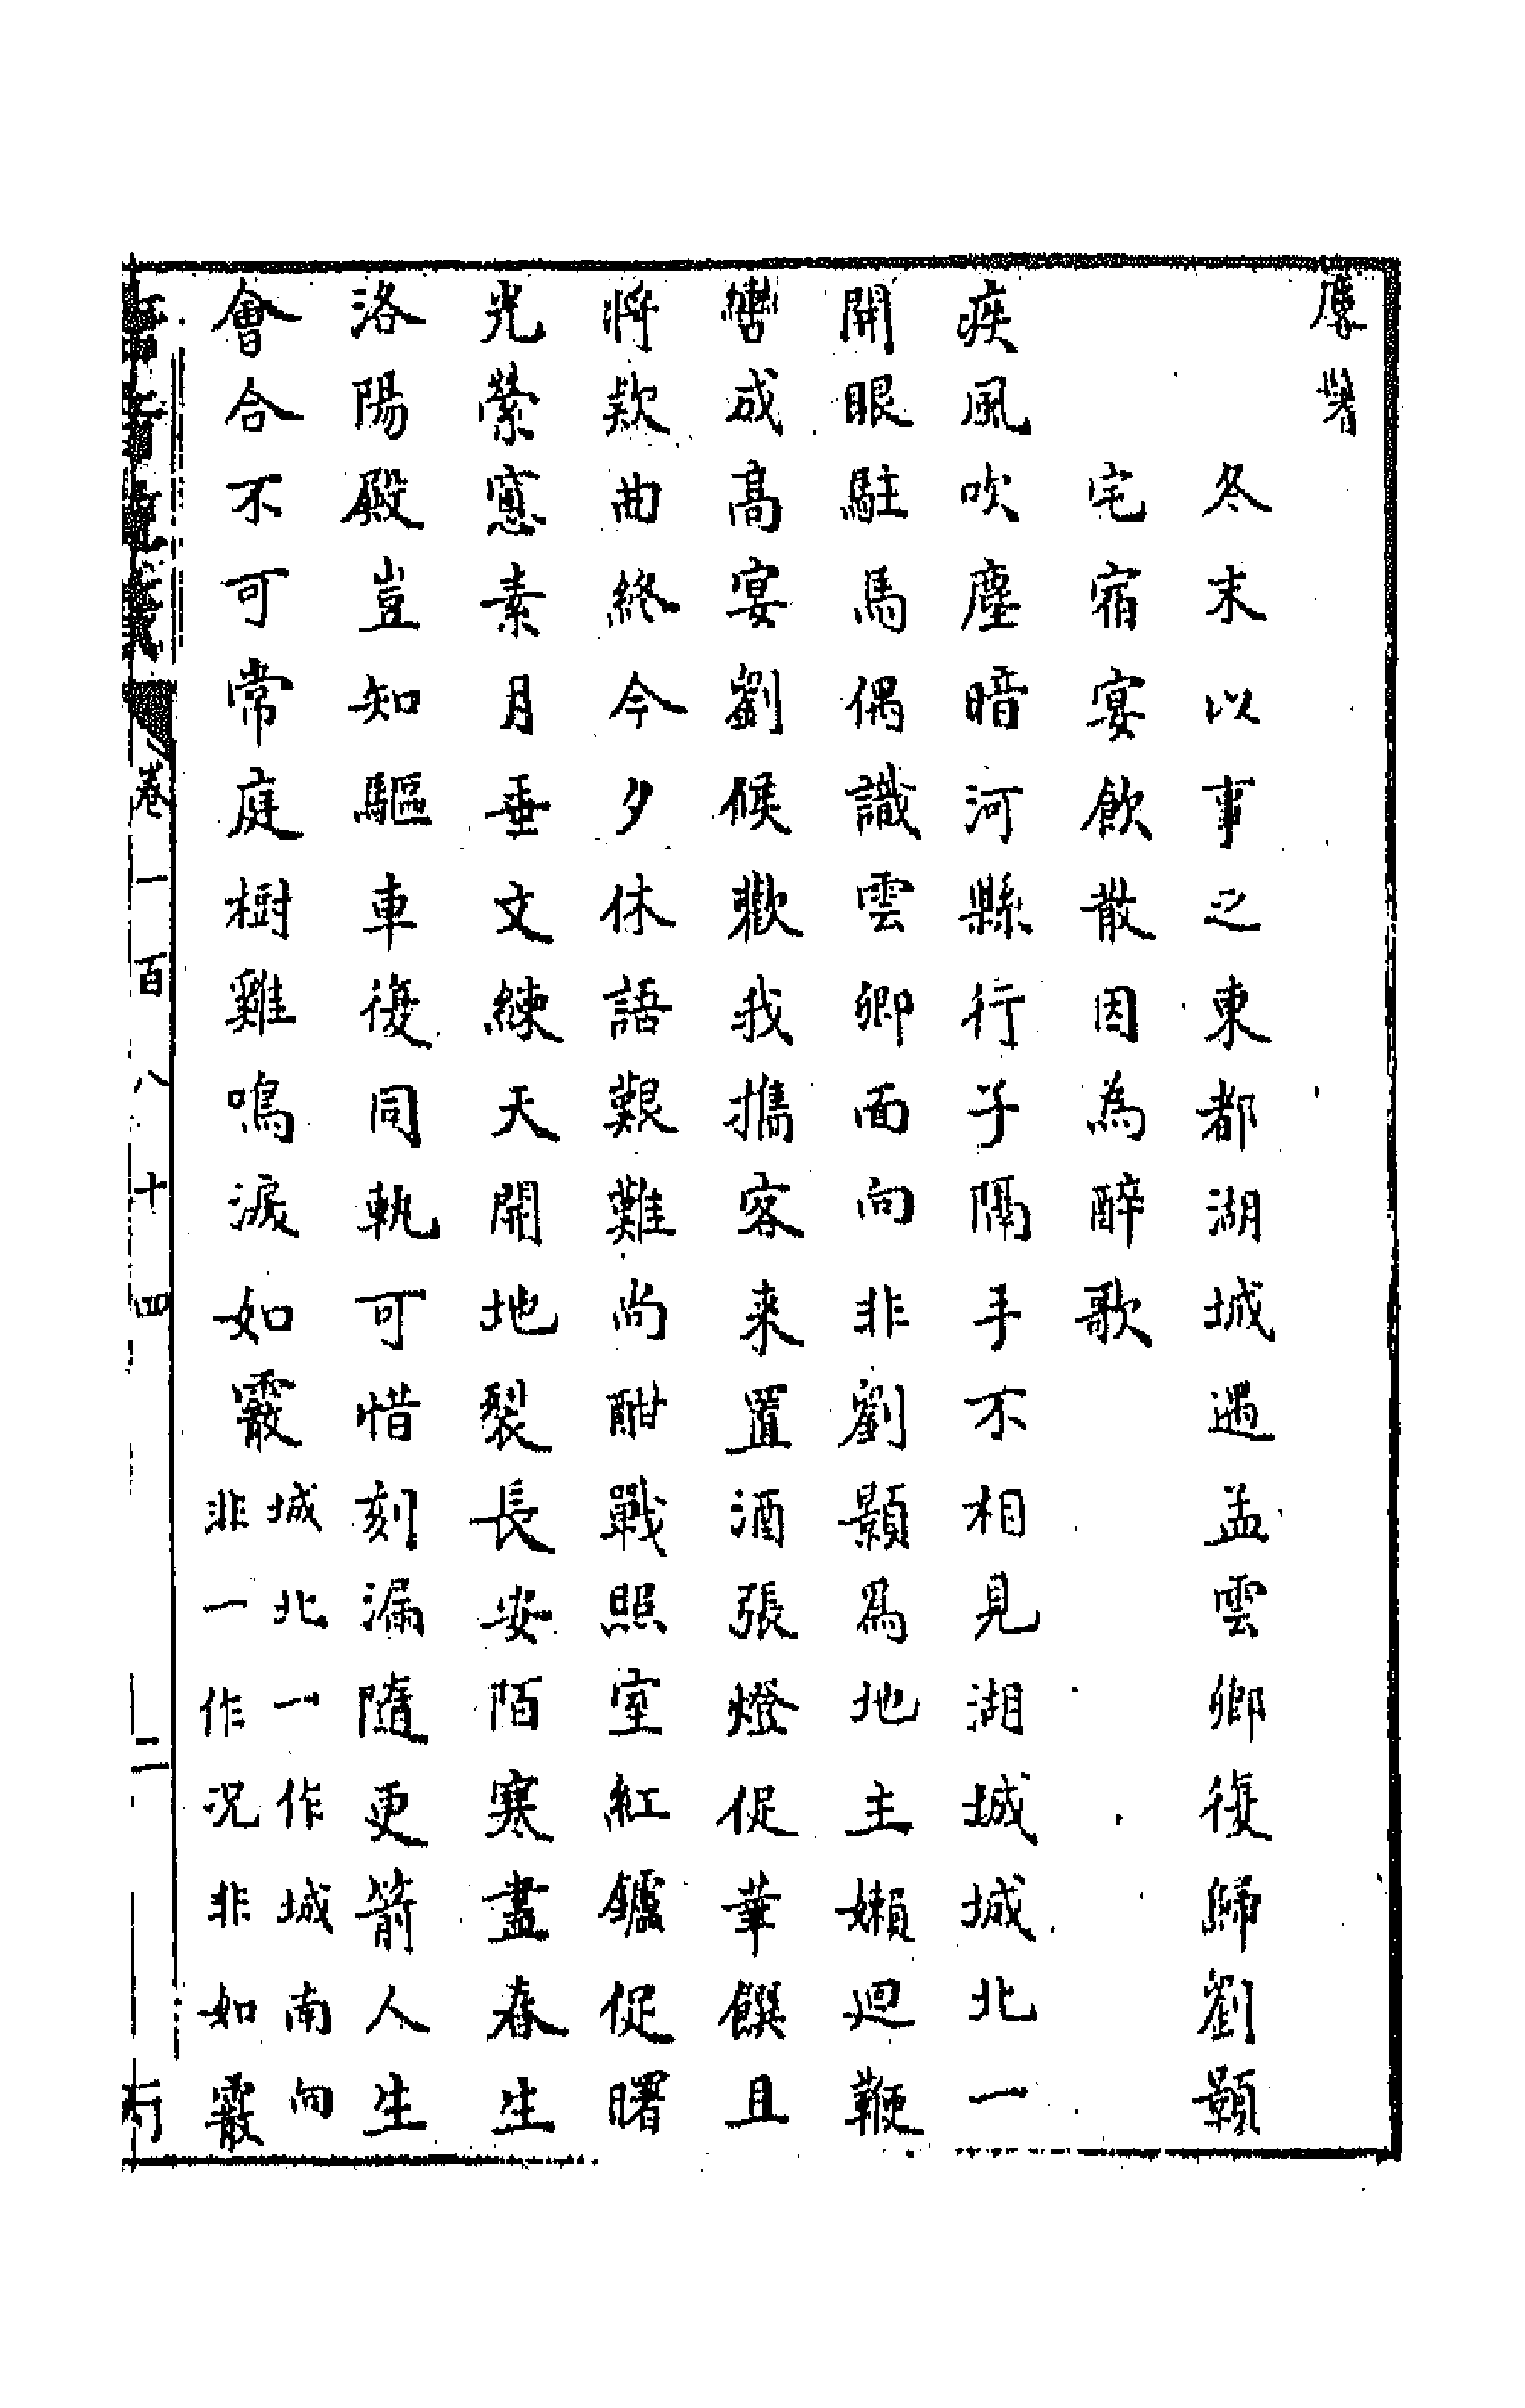 冬末以事之東都湖城遇孟雲卿復歸劉顥
宅宿宴飲散因為醉歌
疾風吹塵暗河縣行子隔手不相見湖城城北一
開眼駐馬偶識雲卿面向非劉顥爲地主嬾迴鞭
轡成高宴劉候歡我攜客来置酒張燈促華饌且
將款曲終今夕休語艱難尚酣戰照室紅鑪促曙
光縈窻素月垂文練天開地裂長安陌寒盡春生
洛陽殿豈知驅車復同軌可惜刻漏隨更箭人生
會合不可常庭樹雞鳴淚如霰
城北一作城南向
非一作況非如霰
卷一百八十四 二